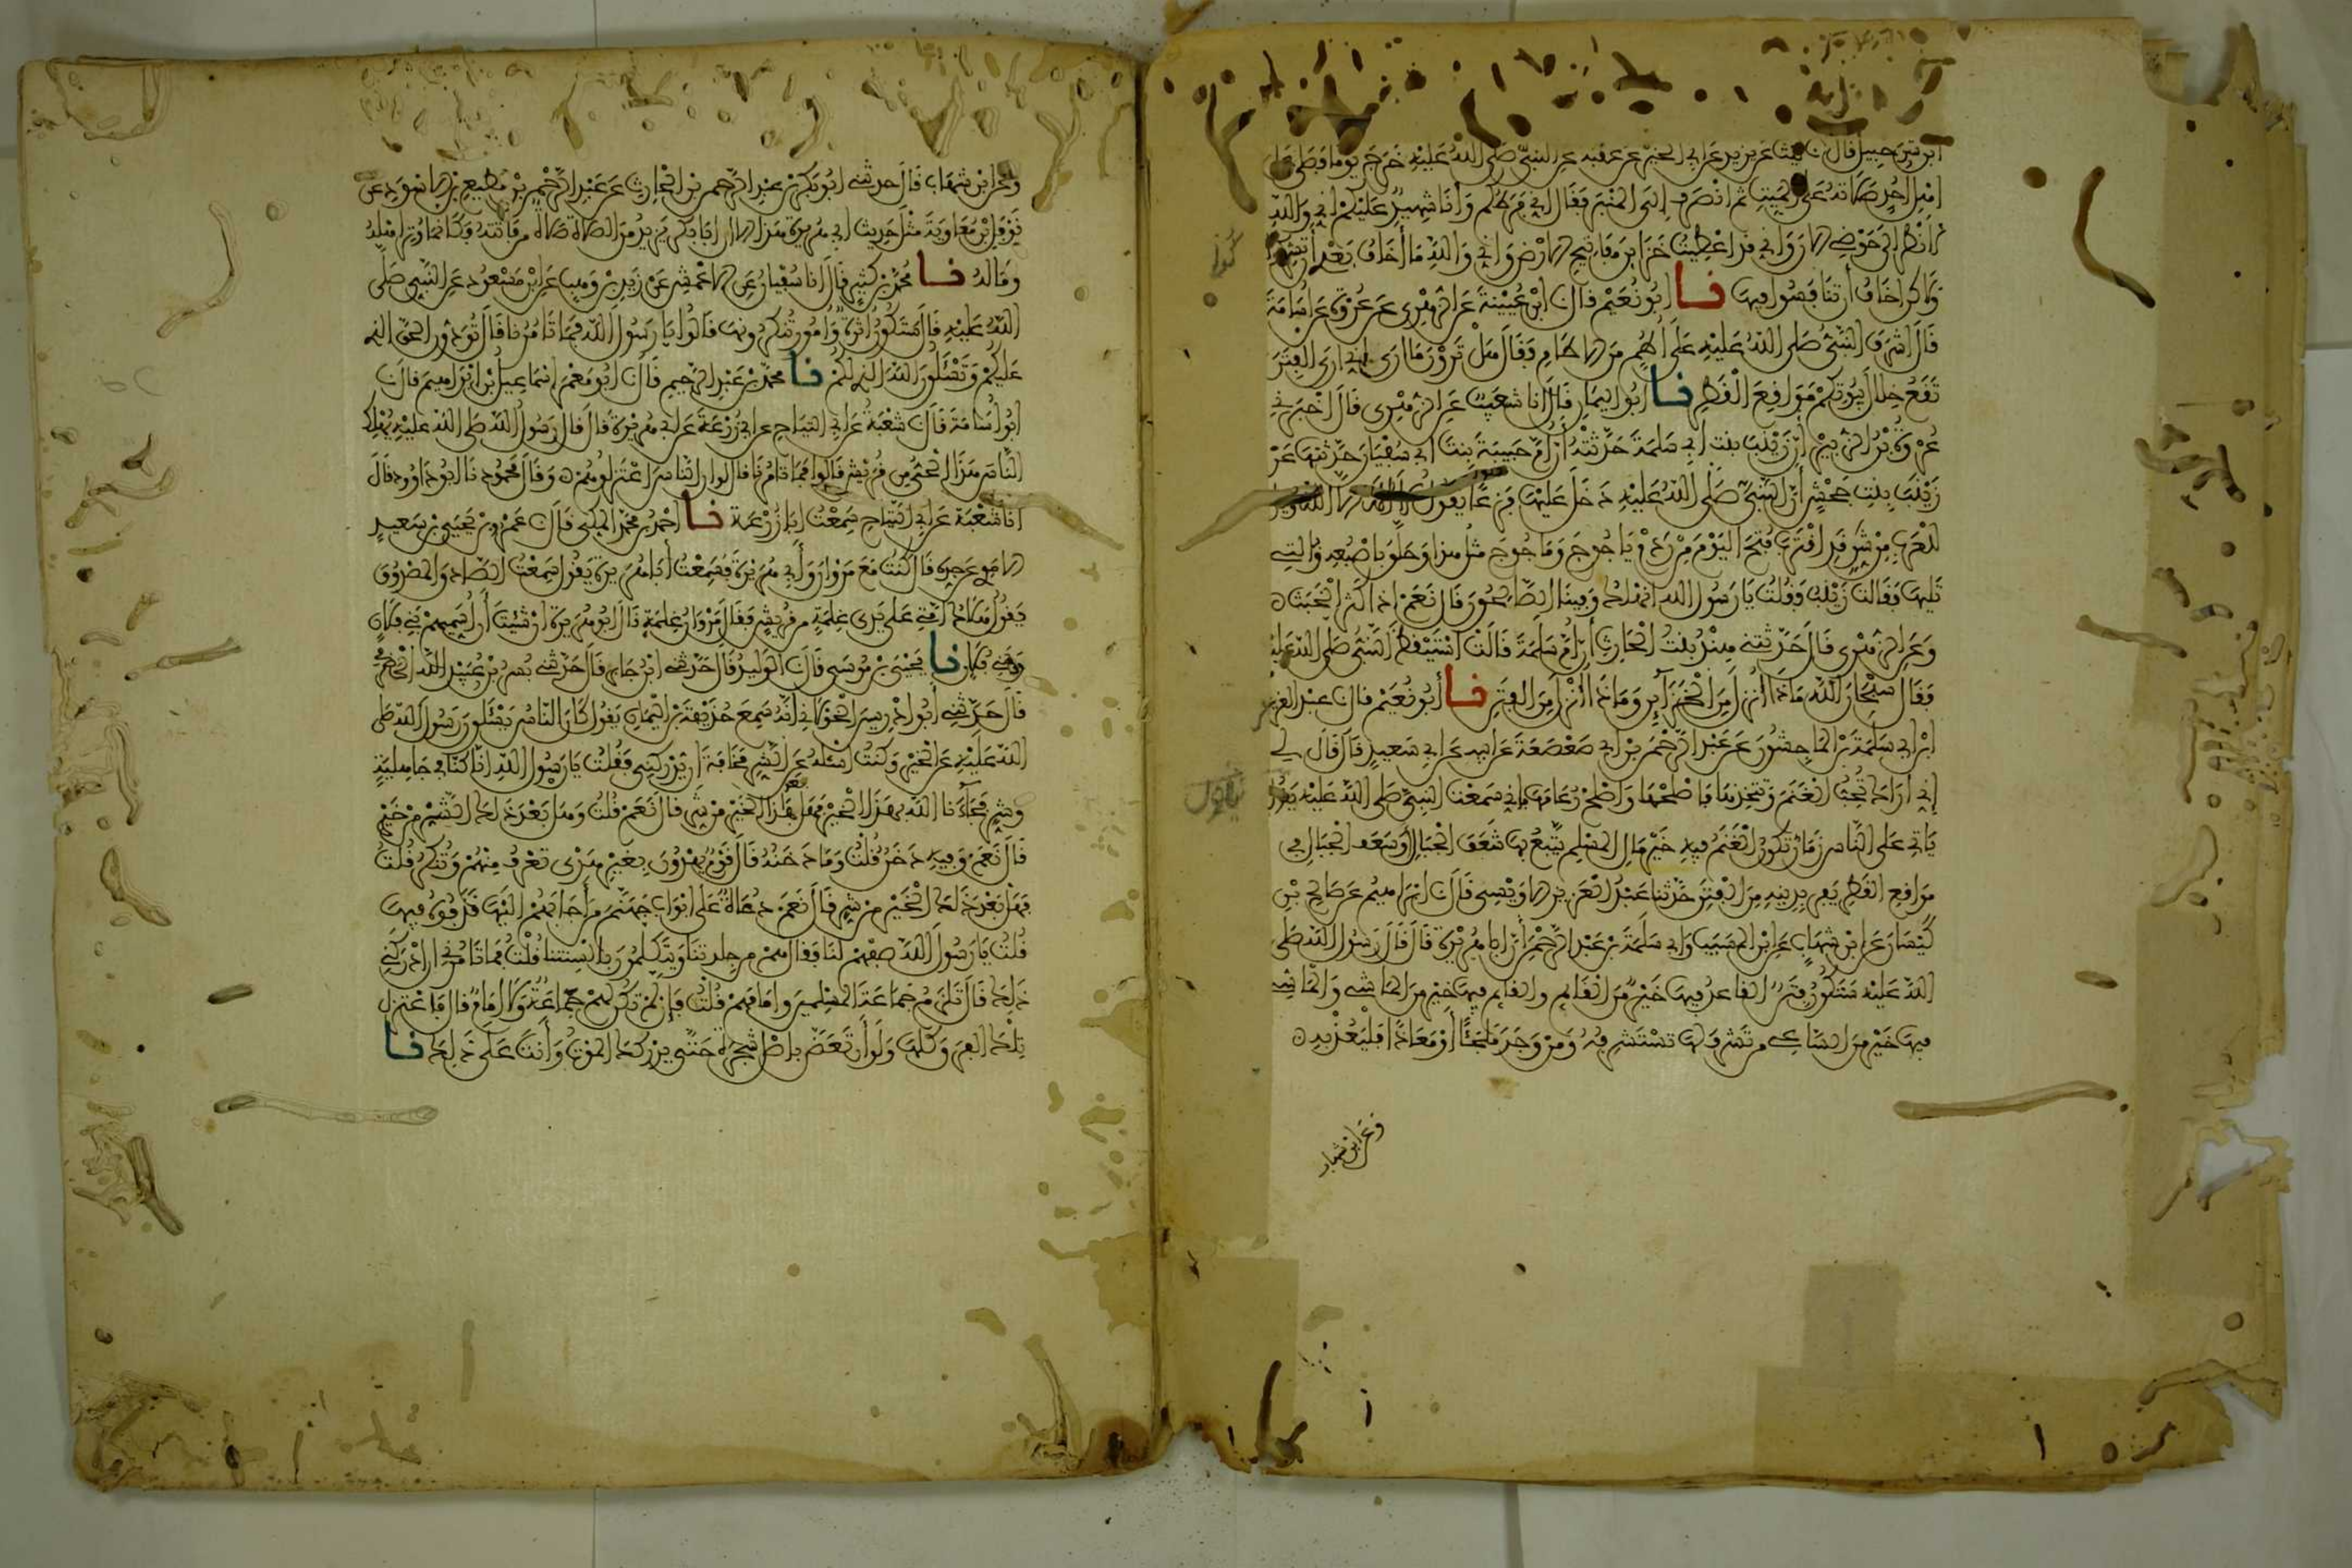 ابن شرحبيل قال نا ليث عن يزيد عن ابي الخير عن عقبة عن النبي صلى الله عليه خرج يوما فصلى على
اهل احد صلاته على الميت ثم انصرف الى المنبر فقال اني فرطكم وأنا شهيد عليكم اني والله
لانظر الى حوضي الان واني قد اعطيت خزاين مفاتيح الارض واني والله ما أخاف بعدي أن تشركوا
ولاكن اخاف أن تنافسوا فيها نا ابو نعيم قال نا ابن عيينة عن الزهري عن عروة عن أسامة
قال اشرف النبي صلى الله عليه على أطم من الاطام فقال هل ترون ما ارى اني ارى الفتن
تقع خلال بيوتكم مواقع القطر نا ابو اليمان قال أنا شعيب عن الزهري قال اخبرني
عروة بن الزبير أن زينب بنت ابي سلمة حدثته أن أم حبيبة بنت ابي سفيان حدثتها عن
زينب بنت جحش أن النبي صلى الله عليه دخل عليها فزعا يقول لا إله الا الله ويل
للعرب من شر قد اقترب فتح اليوم من ردم ياجوج وماجوج مثل هذا وحلق باصبعه والتي
تليها فقالت زينب فقلت يا رسول الله انهلك وفينا الصالحون قال نعم اذا كثر الخبث
وعن الزهري قال حدثتني هند بنت الحارث أن أم سلمة قالت استيقظ النبي صلى الله عليه
فقال سبحان الله ماذا أنزل من الخزآين وماذا أنزل من الفتن نا أبو نعيم قال نا عبد العزيز
ابن ابي سلمة بن الماجشون عن عبد الرحمن بن ابي صعصعة عن ابيه عن ابي سعيد قال قال لي
إني أراك تحب الغنم وتتخذها فاصلحها واصلح رعامها فإني سمعت النبي صلى الله عليه يقول
ياتي على الناس زمان تكون الغنم فيه خير مال المسلم يتبع بها شعف الجبال أو سعف الجبال في
مواقع القطر يفر بدينه من الفتن حدثنا عبد العزيز الاويسي قال نا ابراهيم عن صالح بن
كيسان عن ابن شهاب عن ابن المسيب وابي سلمة بن عبد الرحمن أن ابا هريرة قال قال رسول الله صلى
الله عليه ستكون فتن القاعد فيها خير من القايم والقايم فيها خير من الماشي والماشي
فيها خير من الساعي من تشرف لها تستشرفه ومن وجد ملجئا أو معاذا فليعذ به
وعن ابن شهاب
وعن ابن شهاب قال حدثني ابو بكر بن عبد الرحمن بن الحارث عن عبد الرحمن بن مطيع بن الاسود عن
نوفل بن معاوية مثل حديث ابي هريرة هذا الا ان ابا بكر يزيد من الصلاة صلاة من فاتته فكانما وتر اهله
وماله نا محمد بن كثير قال انا سفيان عن الاعمش عن زيد بن وهب عن ابن مسعود عن النبي صلى
الله عليه قال ستكون أثرة وامور تنكرونها قالوا يا رسول الله فما تامرنا قال تودون الحق الذي
عليكم وتسئلون الله الذي لكم نا محمد بن عبد الرحيم قال نا ابو معمر اسماعيل بن ابراهيم قال نا
ابو أسامة قال نا شعبة عن ابي التياح عن ابي زرعة عن ابي هريرة قال قال رسول الله صلى الله عليه يهلك
الناس هذا الحي من قريش قالوا فما تامرنا قال لو ان الناس اعتزلوهم وقال محمود نا ابو داوود قال
انا شعبة عن ابي التياح سمعت ابا زرعة نا احمد بن محمد المكي قال نا عمرو بن يحيى بن سعيد
الاموي عن جده قال كنت مع مروان وأبي هريرة فسمعت أبا هريرة يقول سمعت الصادق المصدوق
يقول هلاك امتي على يدي غلمة من قريش فقال مروان غلمة قال ابو هريرة ان شئت أن أسميهم بني فلان
وبني فلان نا يحيى بن موسى قال نا الوليد قال حدثني ابن جابر قال حدثني بسر بن عبيد الله الحضرمي
قال حدثني أبو ادريس الخولاني انه سمع حذيفة بن اليمان يقول كان الناس يسئلون رسول الله صلى
الله عليه عن الخير وكنت اسئله عن الشر مخافة ان يدركني فقلت يا رسول الله إنا كنا في جاهلية
وشر فجآءنا الله بهذا الخير فهل بعد هذا الخير من شر قال نعم قلت وهل بعد ذلك الشر من خير
قال نعم وفيه دخن قلت وما دخنه قال قوم يهدون بغير هديي تعرف منهم وتنكر قلت
فهل بعد ذلك الخير من شر قال نعم دعاة على ابواب جهنم من أجابهم اليها قذفوه فيها
قلت يا رسول الله صفهم لنا فقال هم من جلدتنا ويتكلمون بالسنتنا قلت فما تامرني ان ادركني
ذلك قال تلزم جماعة المسلمين وامامهم قلت فإن لم تكن لهم جماعة ولا امام قال فاعتزل
تلك الفرق كلها ولو أن تعض باصل شجرة حتى يدركك الموت وأنت على ذلك نا